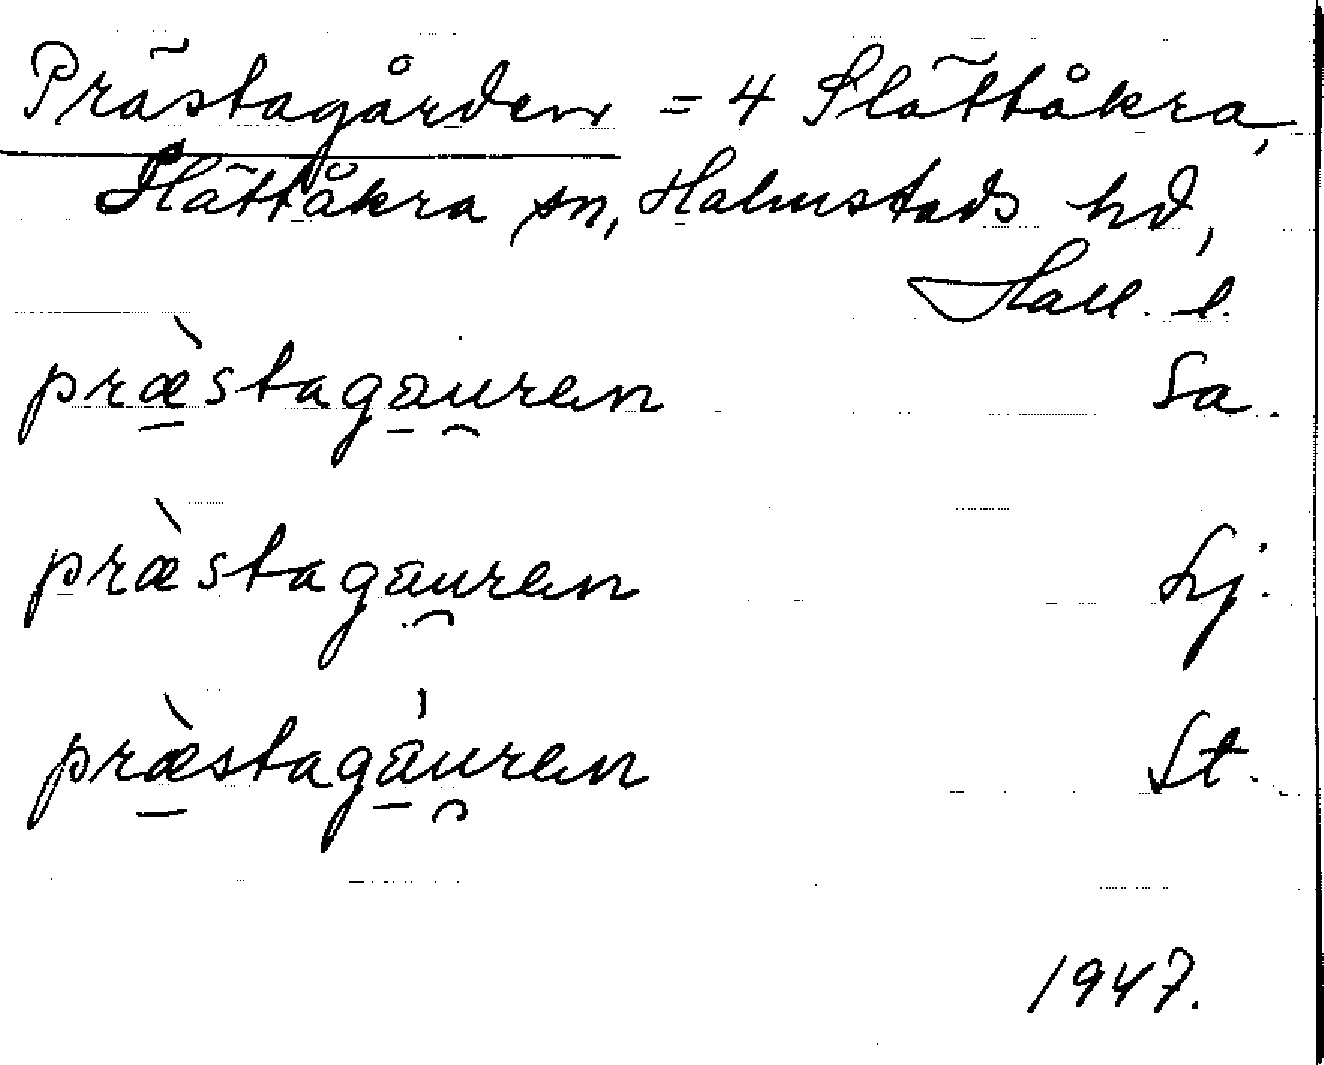 Prästagården = 4 Slättåkra,
Slättåkra sn, Halmstads hd,
Hall. l.
præ̀stagāu̯ren Sa.
præ̀stagāu̯ren Lj.
præ̀stagā́u̯ren St.
1947.